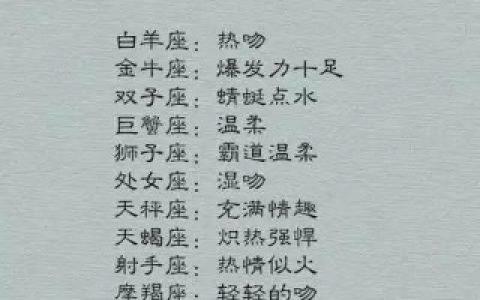 白羊座：热吻
金牛座：爆发力十足
双子座：蜻蜓点水
巨蟹座：温柔
狮子座：霸道温柔
处女座：湿吻
天秤座：充满情趣
天蝎座：炽热强悍
射手座：热情似火
摩羯座：轻轻的吻